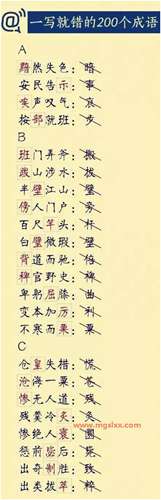 @ 一写就错的200个成语
A
黯然失色：暗
安民告示：事
唉声叹气：哀
按部就班：步
B
班门弄斧：搬
跋山涉水：拔
半壁江山：璧
傍人门户：旁
百尺竿头：杆
白璧微瑕：壁
背道而驰：弛
稗官野史：裨
卑躬屈膝：曲
变本加厉：利
不寒而栗：粟
C
仓皇失措：慌
沧海一粟：苍
惨无人道：残
残羹冷炙：灸
惨绝人寰：圜
惩前毖后：毙
出奇制胜：致
出类拔萃：粹
www.mgslxx.com